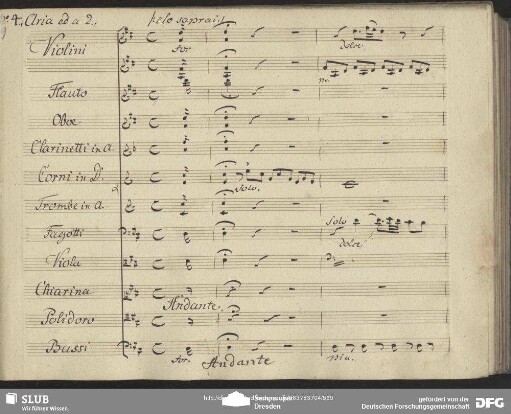 No. 4. Aria ed a 2.
Violini
for
dolce
Flauto
Oboe
Clarinetti in A.
Corni in D.
Solo.
Trombe in A.
Fagotti
Solo
dolce
Viola
Chiarina
Andante.
Polidoro
Bassi
for.
Andante
SLUB
Wir führen Wissen.
Dresden
gefördert von der
Deutschen Forschungsgemeinschaft
DFG